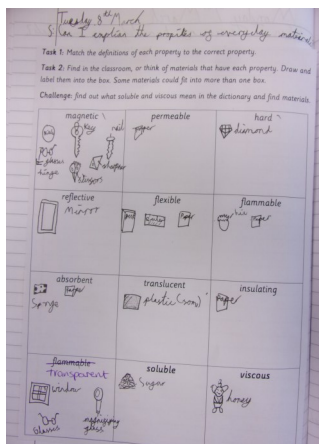 Tuesday 8th March
Can I explan the propites of everyday material
Task 1: Match the definitions of each property to the correct property.
Task 2: Find in the classroom, or think of materials that have each property. Draw and
label them into the box. Some materials could fit into more than one box.
Challenge: find out what soluble and viscous mean in the dictionary and find materials.
magnetic
key
nail
glasses
hinge
permeable
paper
hard
diamond
reflective
Mirror
flexible
paper
flammable
paper
absorbent
paper
Sponge
translucent
plastic (some)
insulating
Paper
flammable
transparent
window
Glasses
glass
soluble
Sugar
viscous
honey